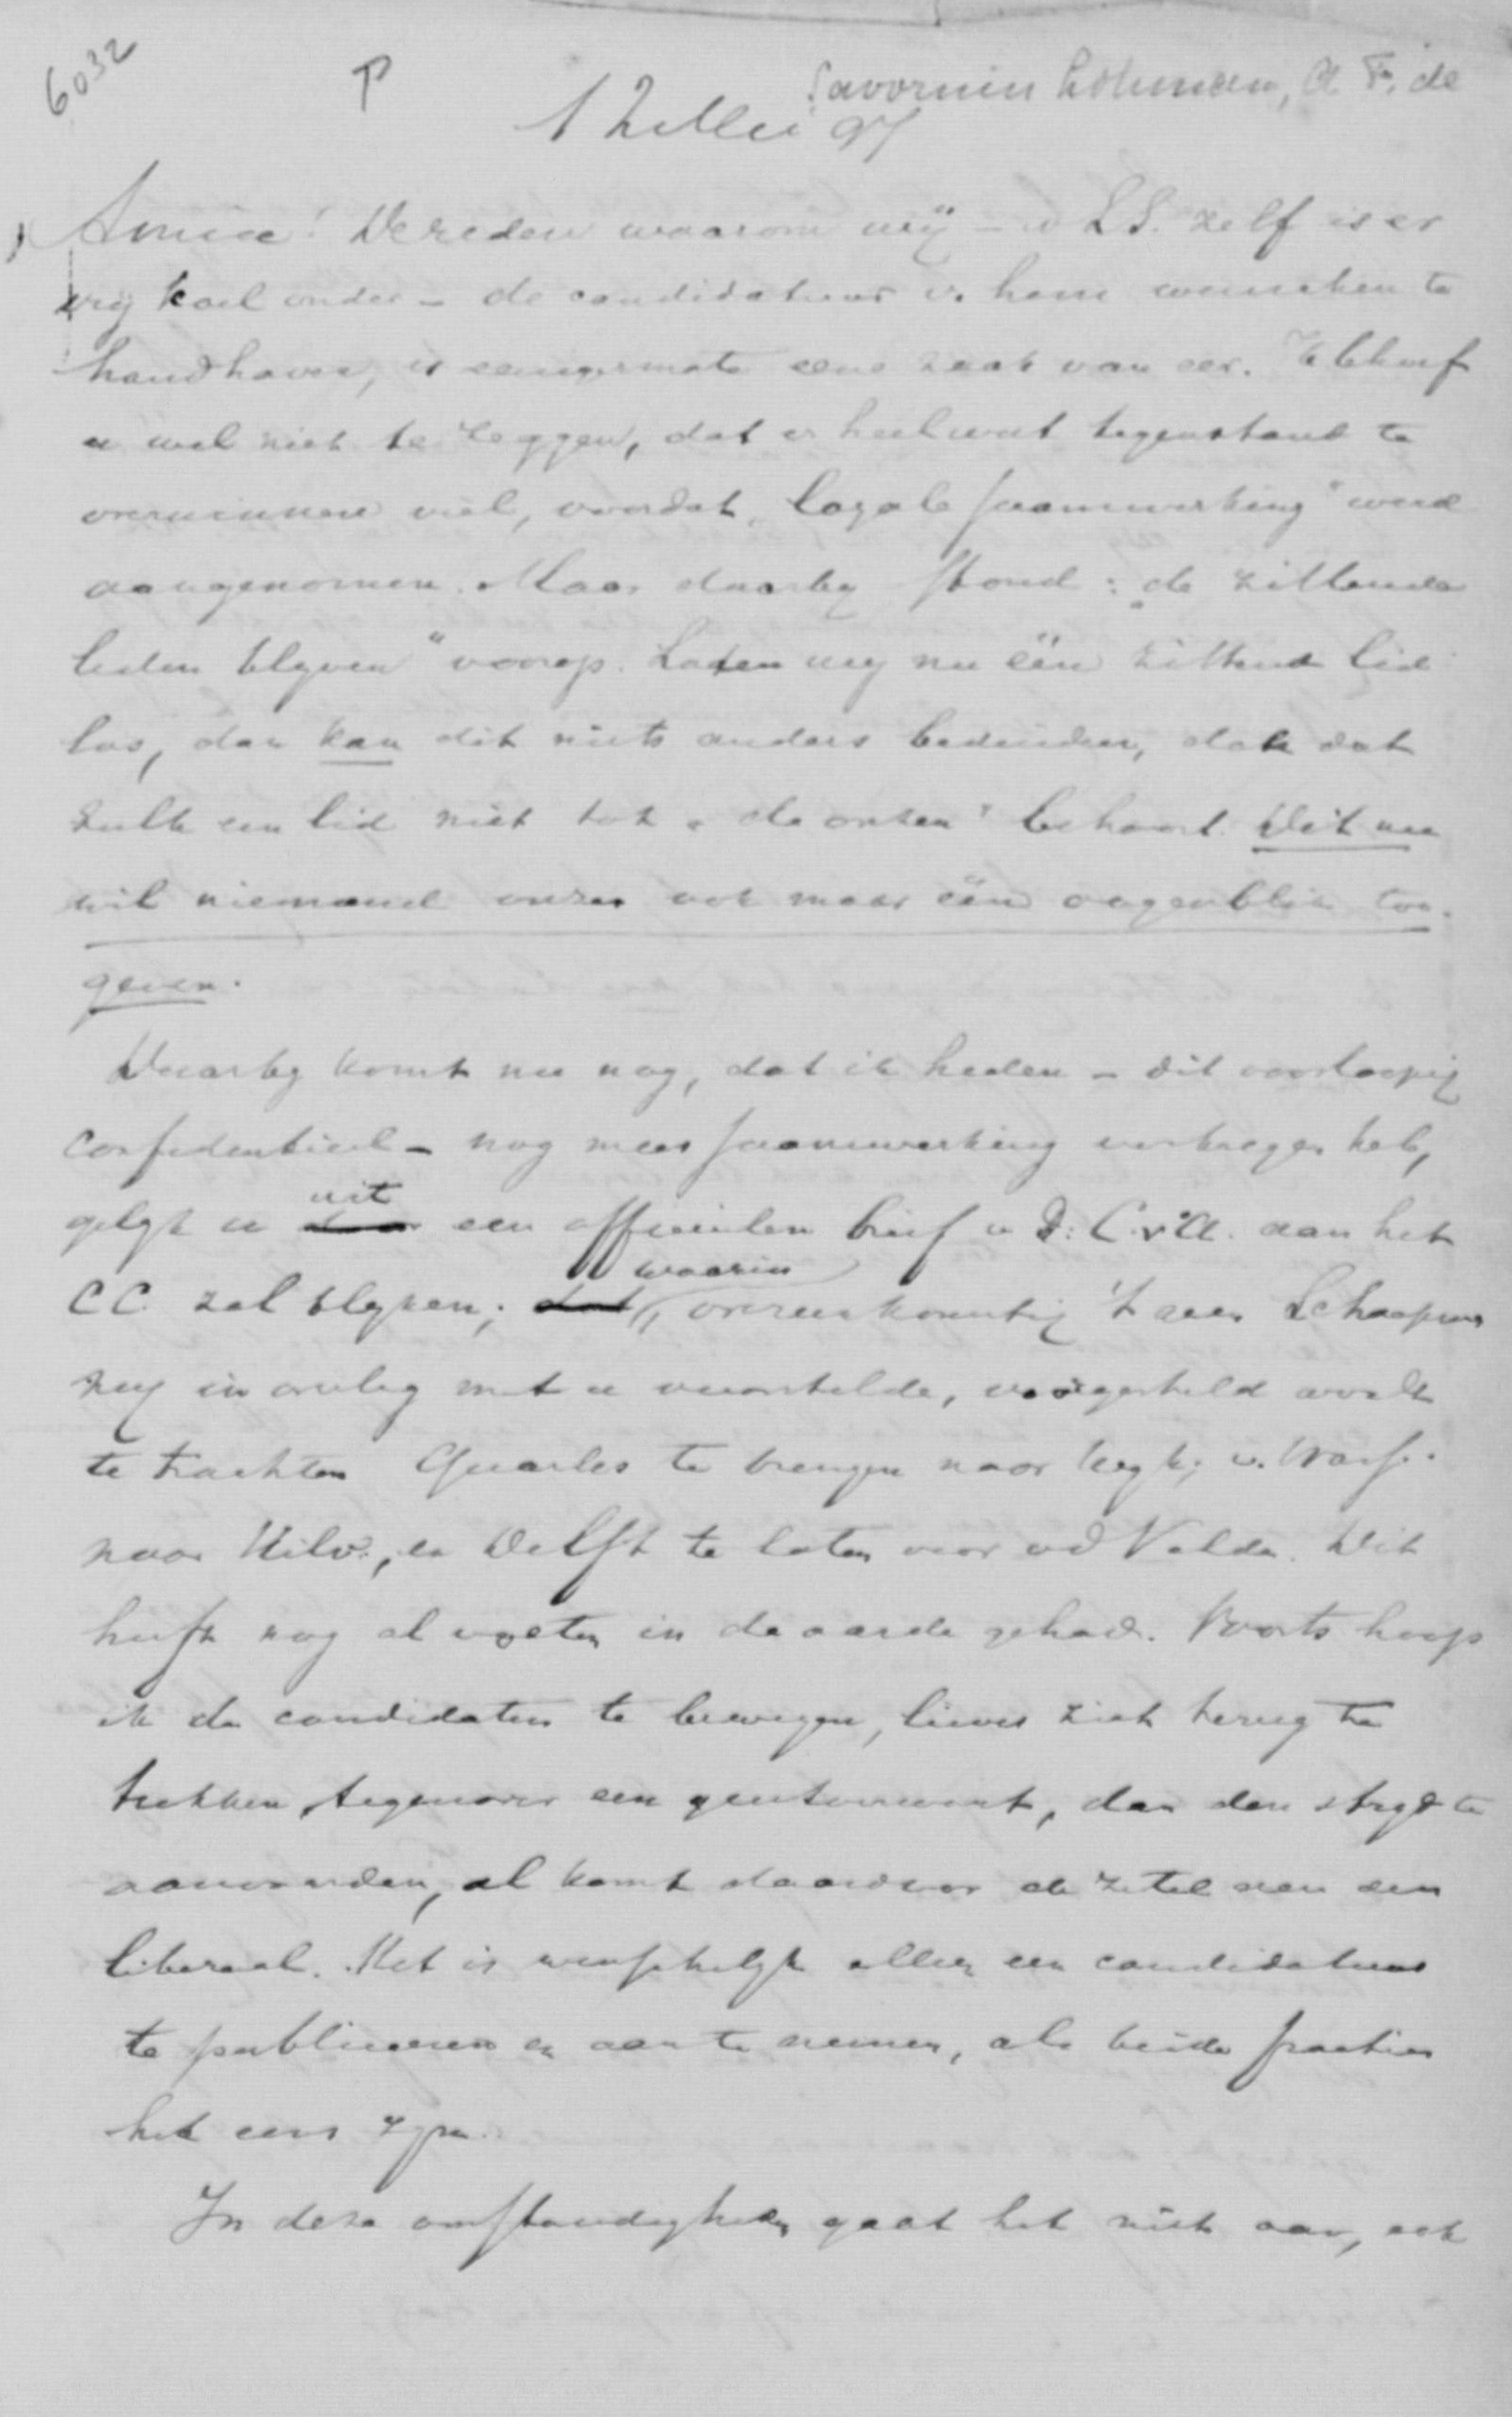 6032
P
Savornin Lohman, A. F. de
12 Mei 97
Amice! De reden waarom wij – v LS. zelf is er
vrij koel onder – de candidatuur v. hem wenschen te
handhaven, is eenigermate eene zaak van eer. Ik behoef
u wel niet te zeggen, dat er heel wat tegenstand te
overwinnen viel, voordat „loyale samenwerking" werd
aangenomen. Maar daarbij stond: „de zittende
leden blijven" voorop. Laten wij nu één zittend lid
los, dan kan dit niets anders beduiden, dan dat
zulk een lid niet tot „de onzen" behoort. Dit nu
wil niemand onzer ook maar één oogenblik toe-
geven.
Daarbij komt nu nog, dat ik heden – dit voorloopig
confidentieel – nog meer samenwerking verkregen heb,
gelijk u uit een officieelen brief v D: C.v.A. aan het
CC zal blijken; waarin, overeenkomstig 't geen Schaepman
mij in overleg met u voorstelde, voorgesteld wordt
te trachten Quarles te brengen naar v.
naar Hilv., en Delft te laten voor vd Velde. Dit
heeft nog al voeten in de aarde gehad. Voorts hoop
ik de candidaten te bewegen, liever zich terug te
trekken tegenover een geestverwant, dan den strijd te
aanvaarden, al komt daardoor de zetel aan een
liberaal. Het is wenschelijk alleen een candidatuur
te publiceeren en aan te nemen, als beide fracties
het eens zijn.
In deze omstandigheden gaat het niet aan, ook